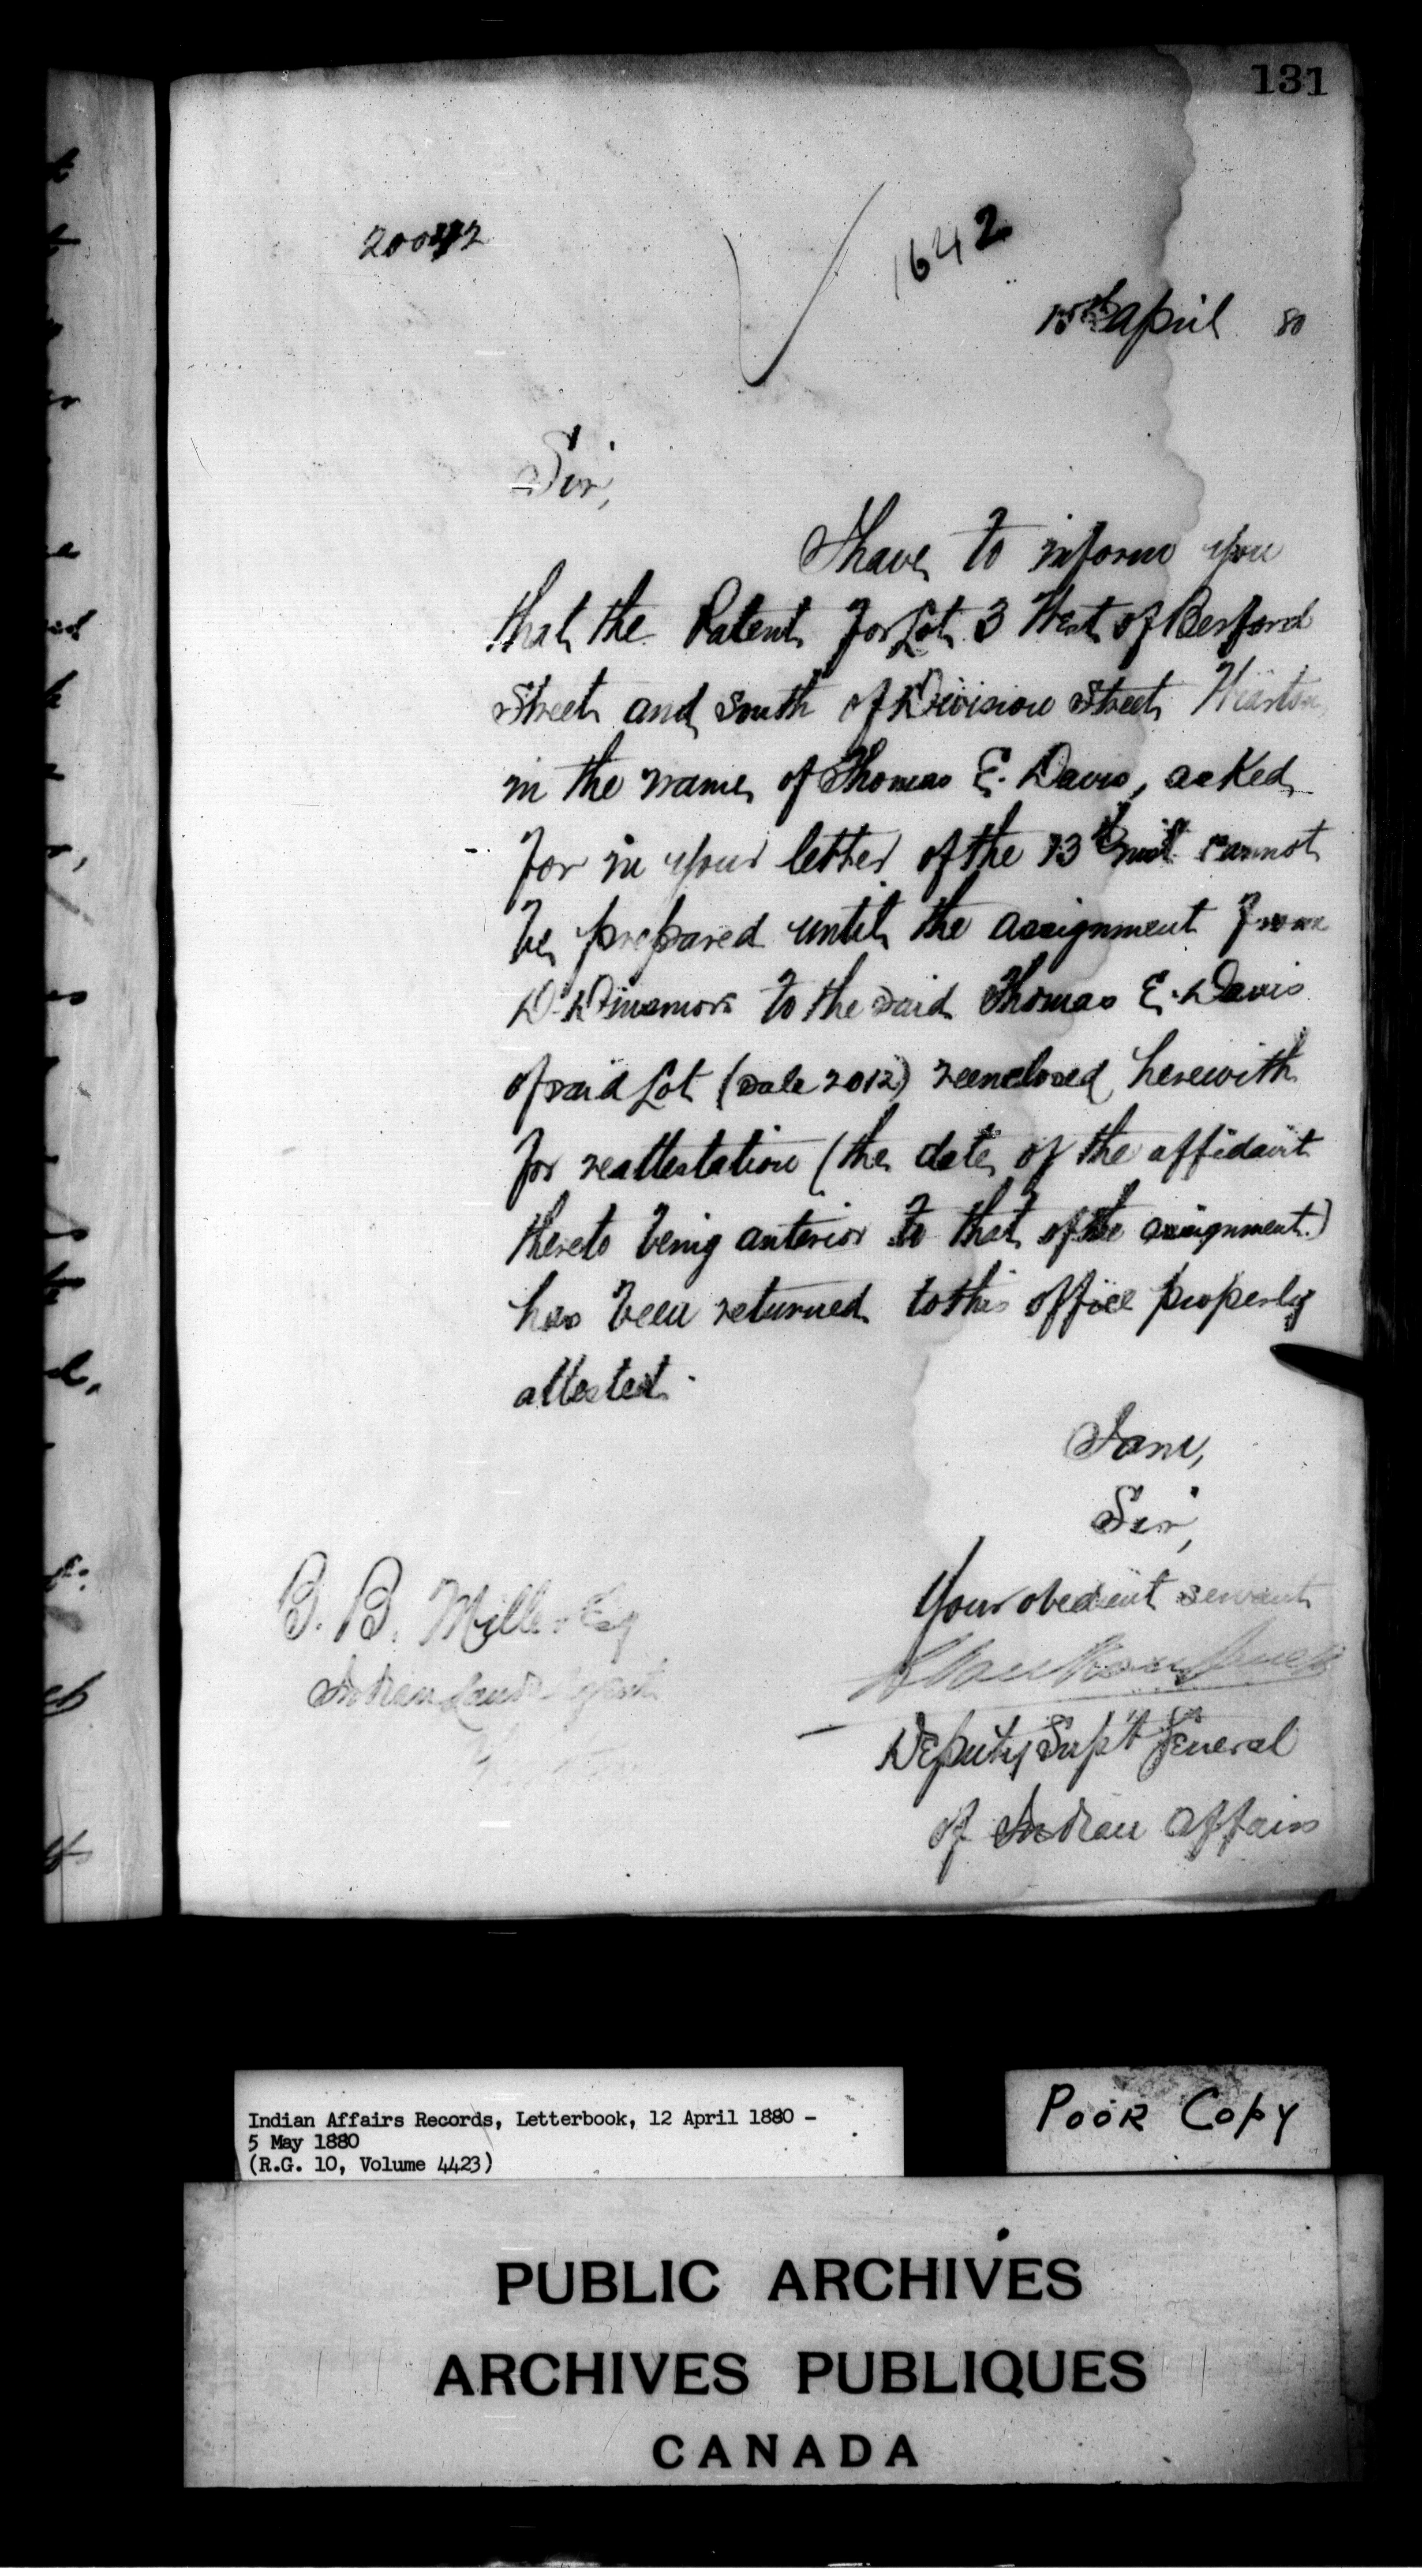 131
1642
15th April 80
Sir,
I have to inform you
that the Patent for Lot 3 West of Berford
Street and South of Division Street Wiarton
in the name of Thomas E. Davis, asked
for in your letter of the 13th inst. cannot
be prepared until the assignment from
D. Dinsmore to the said Thomas E. Davis
of said Lot (Sale 2012) reenclosed herewith
for reattestation (the date of the affidavit
thereto being anterior to that of the assignment)
has been returned to this office properly
attested.
I am,
Sir,
Your obedient servant
L Vankoughnet
Deputy Supt General
of Indian Affairs
B. B. Miller Esq
Indian Land Agent
Indian Affairs Records, Letterbook, 12 April 1880 -
5 May 1880
(R.G. 10, Volume 4423)
POOR COPY
PUBLIC ARCHIVES
ARCHIVES PUBLIQUES
CANADA